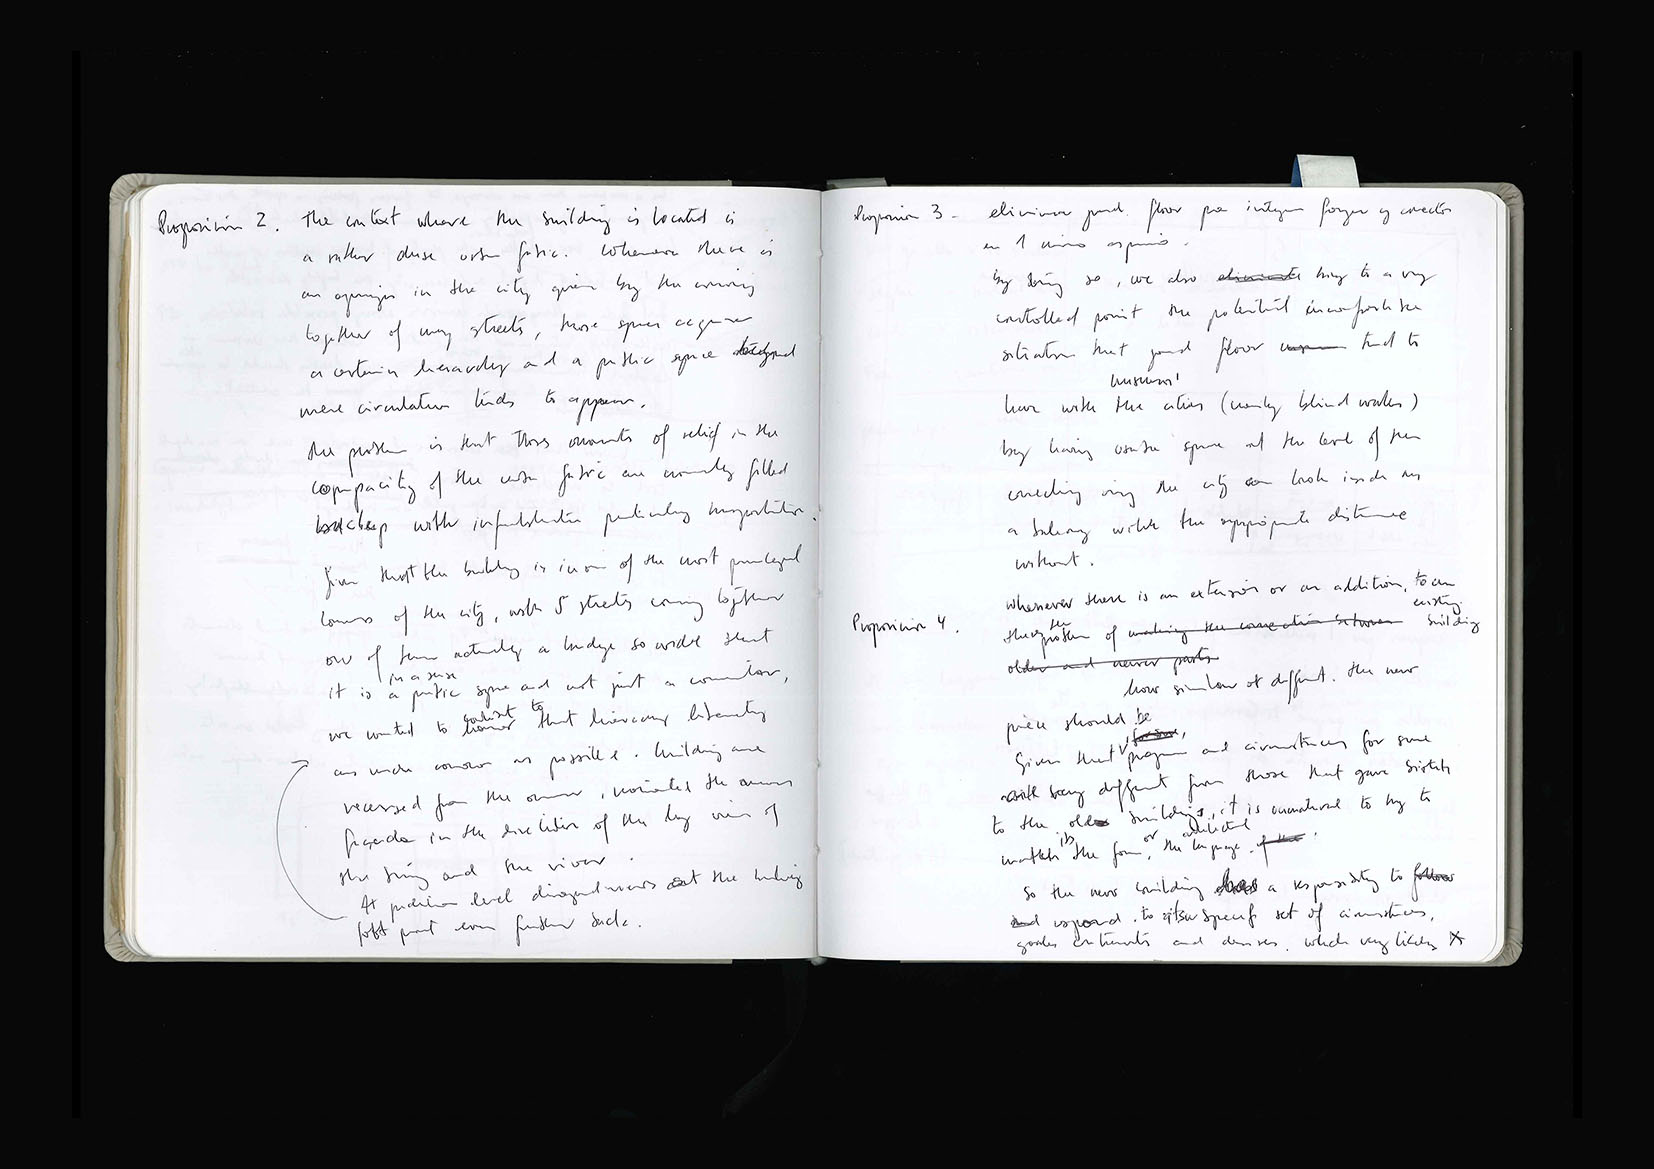 Proposición 2. The context where the building is located is
a rather dense urban fabric. Whenever there is
an opening in the city given by the coming
together of many streets, those spaces acquire
a certain hierarchy and a public space beyond
mere circulation tends to appear.
the problem is that those moments of relief in the
capacity of the urban fabric are normally filled
with infrastructure particularly transportation.
Given that the building is in one of the most privileged
corners of the city, with 5 streets coming together
one of them actually a bridge so wide that
in a sense
it is a public space and not just a connection,
we wanted to that hierarchy liberating
as wide corner as possible. building are
recessed from the corner, the
facade in the direction of the long view of
the and the river.
At pedestrian level the building
part even further back.
Proposición 3 - eliminar ground floor para integrar foyer y conector
en 1 único espacio.
by doing so, we also eliminate bring to a very
controlled point the potential uncomfortable
situation that ground floor tend to
museums'
have with the cities (mainly blind walls)
by having space at the level of the
connecting the city can look inside
a with the appropriate distance
without.
whenever there is an extension or an addition, to an
existing
Proposición 4. the problem of making the connection between building
the
older and newer parts
how similar or different. the new
piece should be
Given that program and circumstances for sure
be
will very different from those that gave birth
to the older buildings, it is unnatural to try to
its or architectural
match the form, the language. of the.
so the new building has a responsibility to follow
and respond. to its specific set of circumstances,
goals constraints and desires. which very likely X